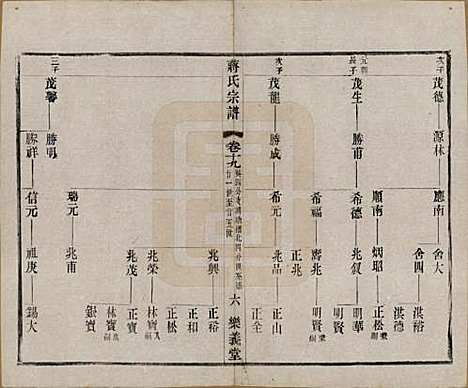 次子
茂德
源林
應南
舍大
舍四
洪裕
洪德
元朝
長子
茂生
勝甫
順南
炳昭
正松
希德
兆叙
明華
明賢
希福
齊兆
明賢
次子
茂龍
勝成
希元
正兆
兆品
正山
正全
蔣氏宗譜
卷十九
六
樂義堂
三子
茂馨
勝明
瑞元
兆甫
兆興
正裕
正和
兆榮
正松
林寶
勝祥
信元
祖庚
兆茂
林寶
銀寶
錫大